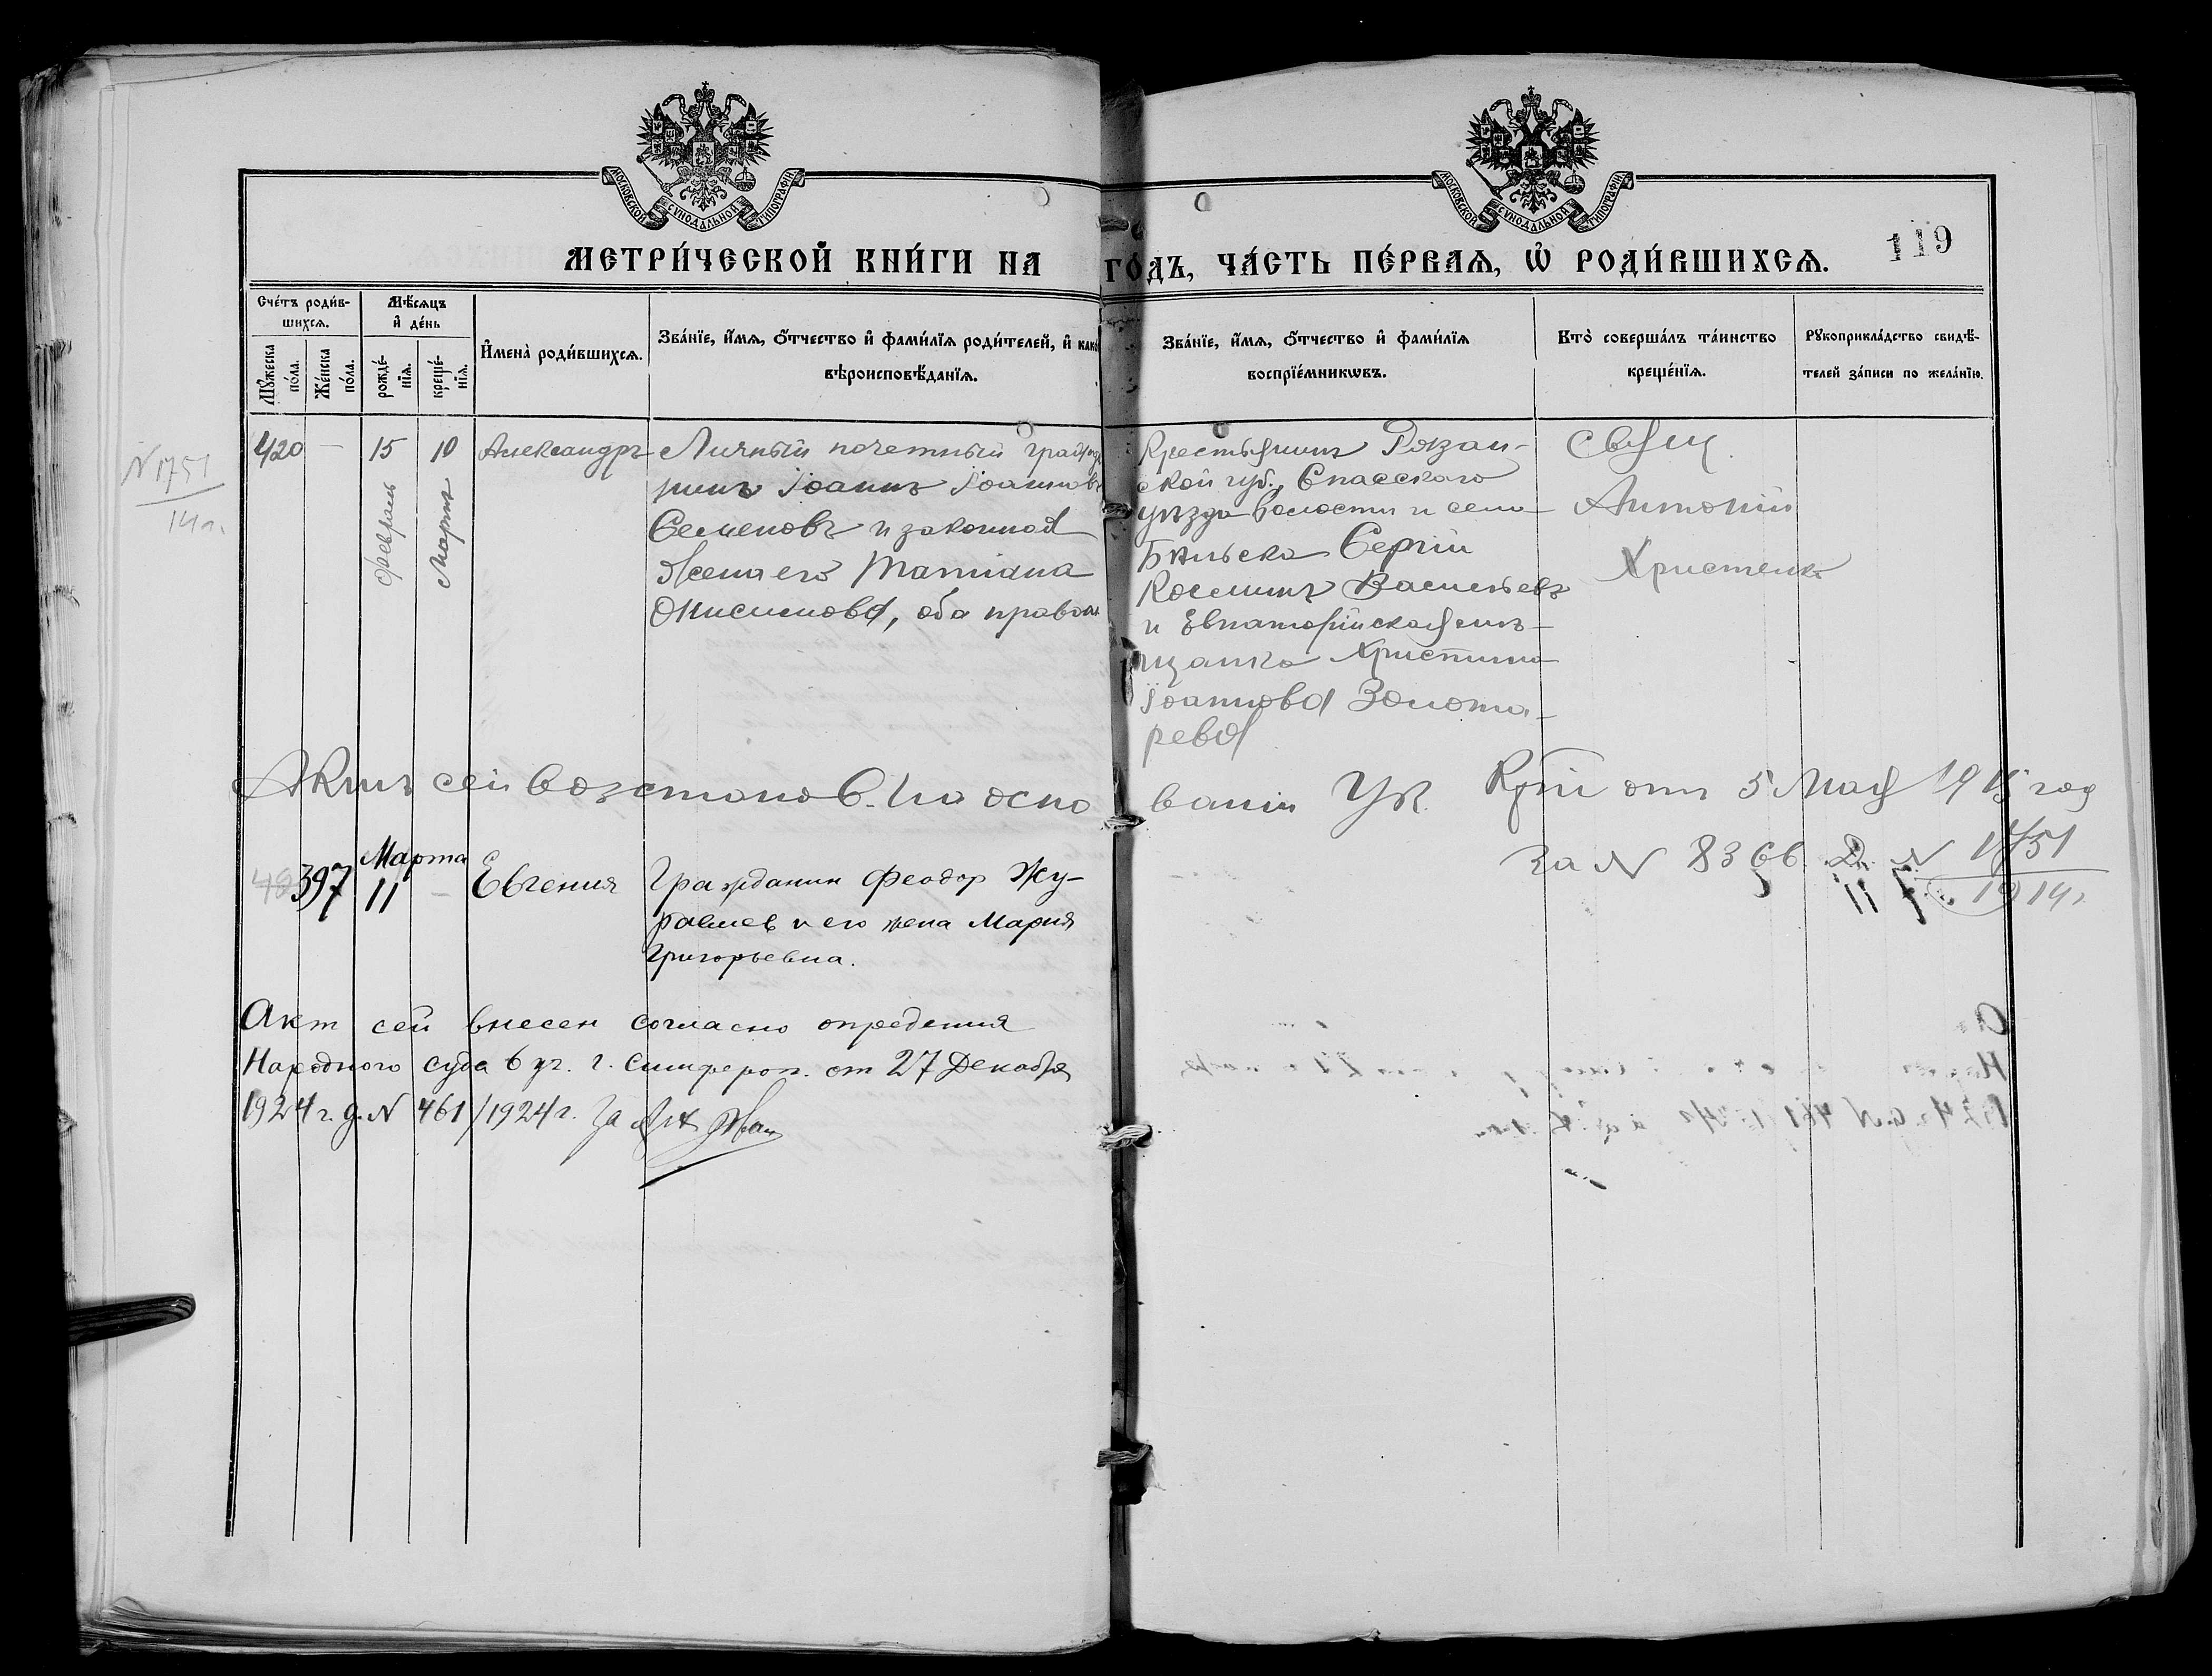 МОСКОВСКОЙ СУНОДАЛЬНОЙ ТИПОГРАФІИ
МОСКОВСКОЙ СУНОДАЛЬНОЙ ТИПОГРАФІИ
МЕТРИ́ЧЕСКОЙ КНИ́ГИ НА ГО́ДЪ, ЧА́СТЬ ПЕ́РВАЯ, Ѡ҆ РОДИ́ВШИХСЯ.
119
Сче́тъ роди́в-
шихся.
Мѣ́сяцъ
и҆ де́нь
Мꙋ́жеска
по́ла.
Же́нска
по́ла.
рожде́-
нїя.
креще́-
нїя.
И҆мена̀ роди́вшихся.
Зва́нїе, и҆́мя, ѻ҆́тчество и҆ фами́лїя роди́телей, и҆ како
вѣроисповѣ́данїя.
Зва́нїе, и҆́мя, ѻ҆́тчество и҆ фами́лїя
воспрїе́мникѡвъ.
Кто̀ соверша́лъ та́инство
креще́нїя.
Рꙋкоприкла́дство свидѣ́-
телей за́писи по жела́нїю.
N 1751
14 г.
420 — 15 10 Александръ
Февраль
Мартъ
Личный почетный гражда
нинъ Іоаннъ Іоаннов
Семеновъ и законная
жена его Татиана
Онисимова, оба правосл
Крестьянинъ Рязан-
ской губ., Спасскаго
уѣзда волости и села
Бѣльска Сергій
Косминъ Васильевъ
и Евпаторійская мѣ-
щанка Христина
Іоаннова Золота-
рева
Свящ.
Антоній
Христенко
Актъ сей возстанов. на осно
ваніи Ук. от 5 Мая 1915 год
за N 8366. Д. N 1751
1914 г.
397 Марта
11 — Евгения
Гражданин Феодор Жу-
равлев и его жена Мария
Григорьевна.
Акт сей внесен согласно определия
Народного суда 6 уч. г. Симфероп. от 27 Декабря
1924 г. д. N 461/1924 г. За